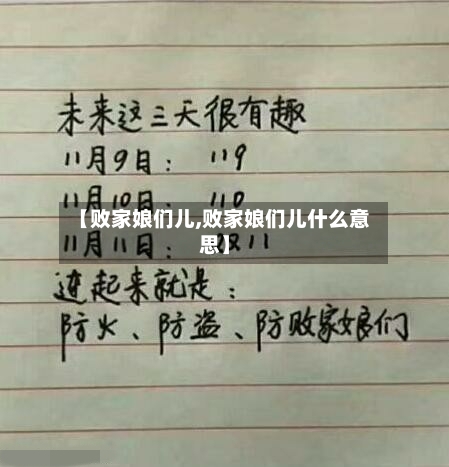 未来这三天很有趣
11月9日： 119
11月10日： 110
【败家娘们儿,败家娘们儿什么意
思】
11月11日： 双11
连起来就是：
防火、防盗、防败家娘们